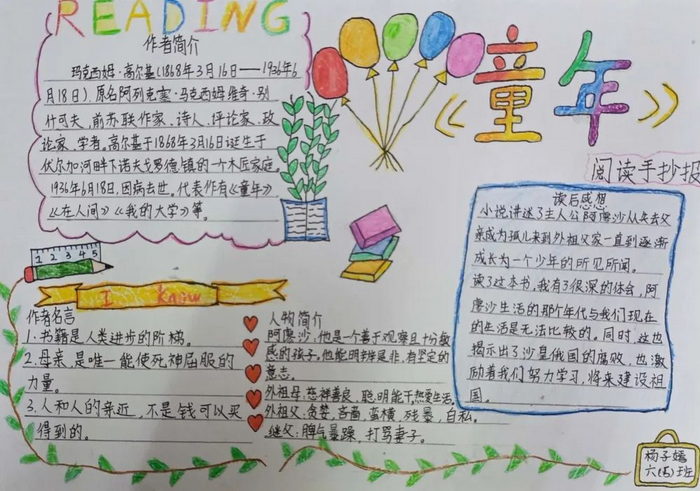 READING
作者简介
玛克西姆·高尔基(1868年3月16日——1936年6
月18日),原名阿列克塞·马克西姆维奇·别
什可夫,前苏联作家、诗人,评论家,政
论家,学者,高尔基于1868年3月16日诞生于
伏尔加河畔下诺夫戈罗德镇的一个木匠家庭。
1936年6月18日,因病去世。代表作有《童年》
《在人间》《我的大学》等。
《童年》
阅读手抄报
读后感想
小说讲述了主人公阿廖沙从失去父
亲成为孤儿来到外祖父家一直到逐渐
成长为一个少年的所见所闻。
读了这本书,我有了很深的体会,阿
廖沙生活的那个年代与我们现在
的生活是无法比较的。同时,这也
揭示出了沙皇俄国的腐败,也激
励着我们努力学习,将来建设祖
国。
1 2 3 4 5
I Know
作者名言
1.书籍是人类进步的阶梯。
2.母亲是唯一能使死神屈服的
力量。
3.人和人的亲近,不是钱可以买
得到的。
人物简介
阿廖沙:他是一个善于观察且十分敏
感的孩子,他能明辨是非,有坚定的
意志。
外祖母:慈祥善良,聪明能干,热爱生活。
外祖父:贪婪、吝啬,蛮横,残暴,自私。
继父:脾气暴躁,打骂妻子。
杨子嫣
六(5)班